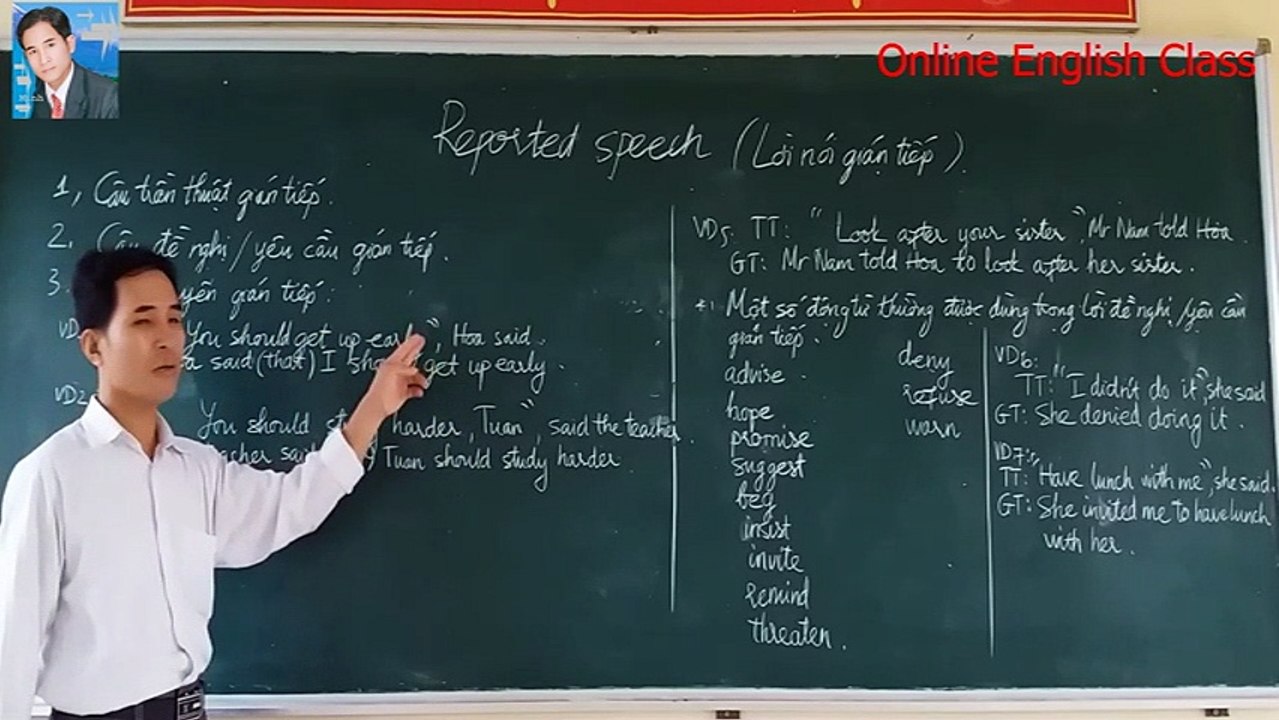 Online English Class
Reported speech (Lời nói gián tiếp).
1, Câu trần thuật gián tiếp.
2. Câu đề nghị/yêu cầu gián tiếp.
3. gián tiếp:
You should get up early", Hoa said.
said (that) I should get up early.
VD2
You should study harder, Tuan", said the teacher.
Tuan should study harder.
VD5: TT: "Look after your sister", Mr Nam told Hoa.
GT: Mr Nam told Hoa to look after her sister.
* Một số động từ thường được dùng trong lời đề nghị/yêu cầu
gián tiếp.
advise
hope
promise
suggest
beg
insist
invite
remind
threaten.
deny
refuse
warn
VD6:
TT: "I didn't do it", she said
GT: She denied doing it.
VD7:
TT: "Have lunch with me", she said.
GT: She invited me to have lunch
with her.